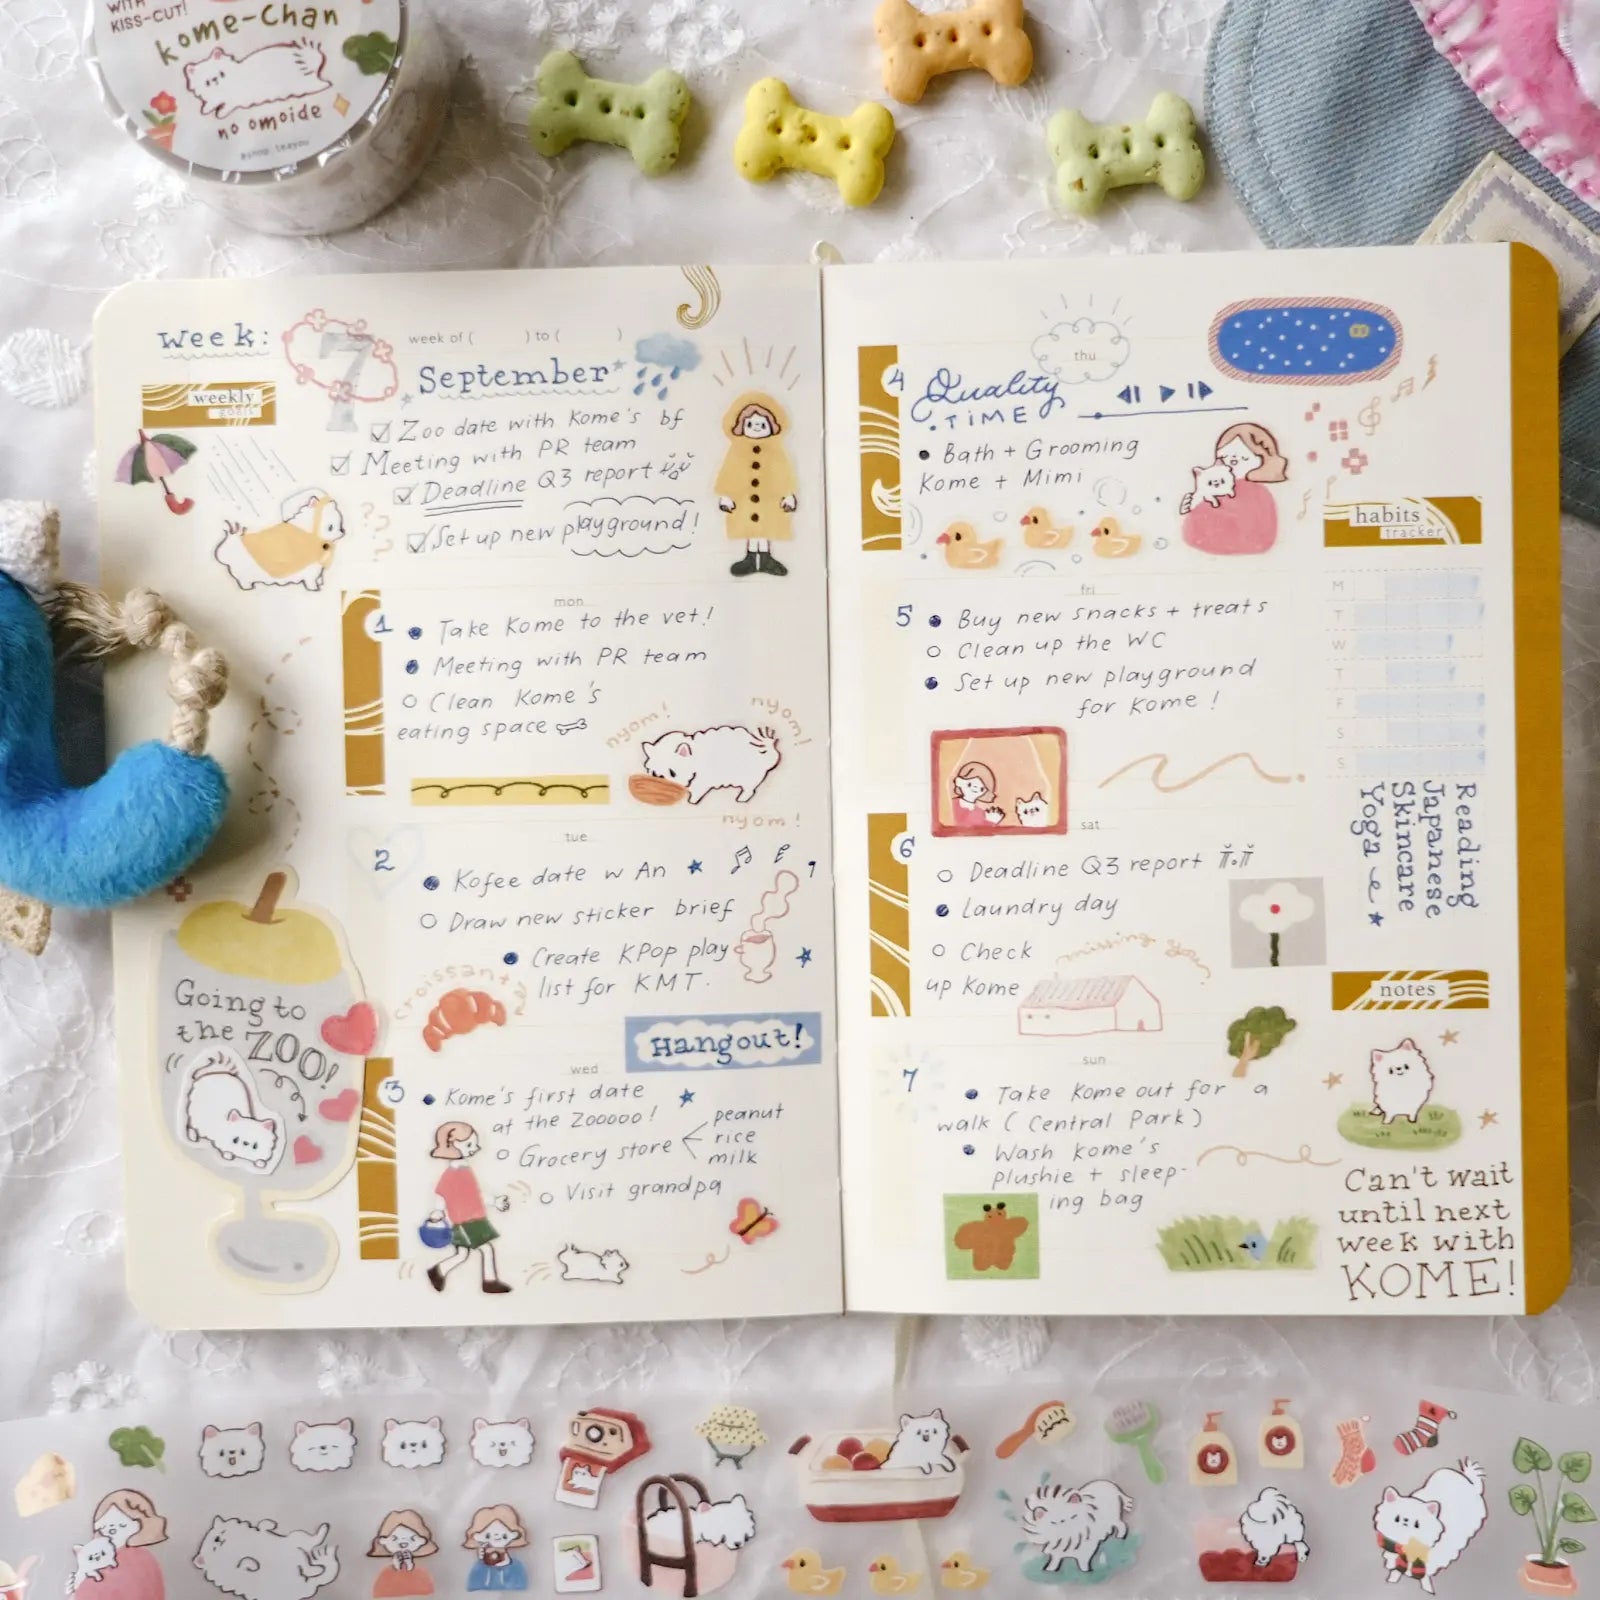 WITH
KISS-CUT!
kome-Chan
no omoide
@shop_teayou
Week:
7
week of ( ) to ( )
September
weekly
goals
Zoo date with Kome's bf
Meeting with PR team
Deadline Q3 report
Set up new playground!
mon
1
Take Kome to the vet!
Meeting with PR team
Clean Kome's
eating space
nyom!
nyom!
nyom!
tue
2
Kofee date w An
Draw new sticker brief
Create KPop play
list for KMT.
croissant
Hangout!
Going to
the ZOO!
wed
3
Kome's first date
at the Zooooo!
Grocery store
peanut
rice
milk
Visit grandpa
thu
4
Quality
TIME
Bath + Grooming
Kome + Mimi
fri
5
Buy new snacks + treats
Clean up the WC
Set up new playground
for Kome!
sat
6
Deadline Q3 report
Laundry day
Check
up Kome
missing you
sun
7
Take Kome out for a
walk (Central Park)
Wash Kome's
plushie + sleep-
ing bag
habits
tracker
M
T
W
T
F
S
S
Reading
Japanese
Skincare
Yoga
notes
Can't wait
until next
week with
KOME!